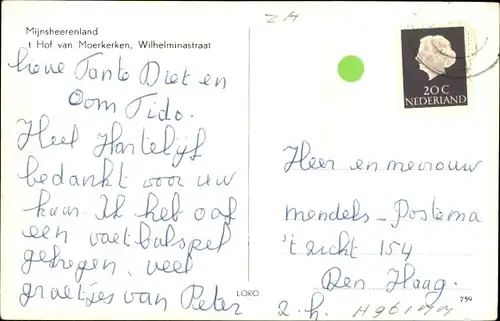 Mijnsheerenland
't Hof van Moerkerken, Wilhelminastraat
lieve Tante Diet en
Oom Tido.
Heel Hartelijk
bedankt voor uw
kaart. Ik heb ook
een voetbalspel
gekregen, veel
groetjes van Peter
LORO
Z H
20 C
NEDERLAND
Heer en mevrouw
Mendels-Postema
't zicht 154
Den Haag.
2. h.
759